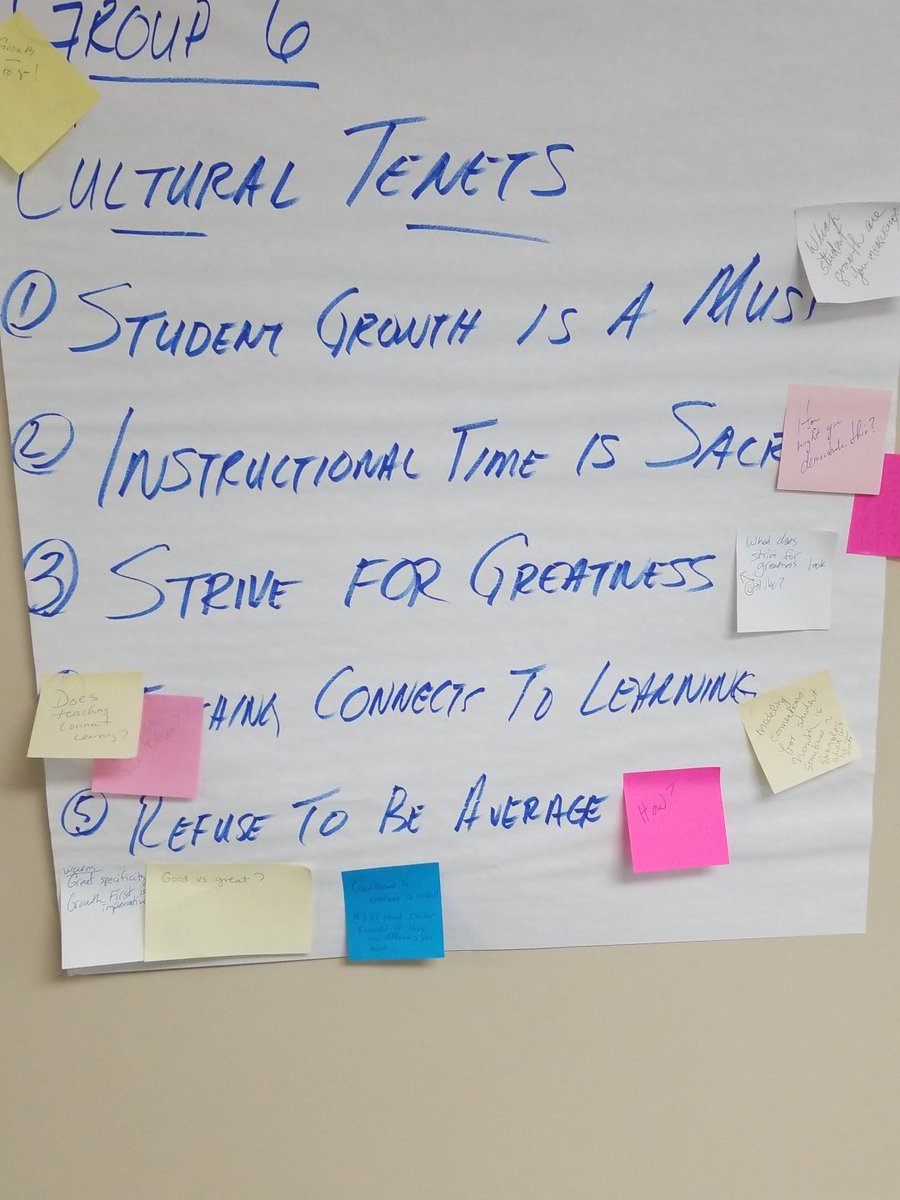 GROUP 6
to go!
CULTURAL TENETS
Which
student
growth are
you measuring
① STUDENT GROWTH IS A MUS
② INSTRUCTIONAL TIME IS SACR
How
might you
demonstrate this?
③ STRIVE FOR GREATNESS
What does
strive for
greatness look
like?
CONNECTS TO LEARNING
Does
teaching
connect
learning?
Modeling
connections
for student
sometimes a
struggle
⑤ REFUSE TO BE AVERAGE
How?
warm
Great specificity
Growth First is
imperative
Good vs great?
Commitment to
excellence is evident